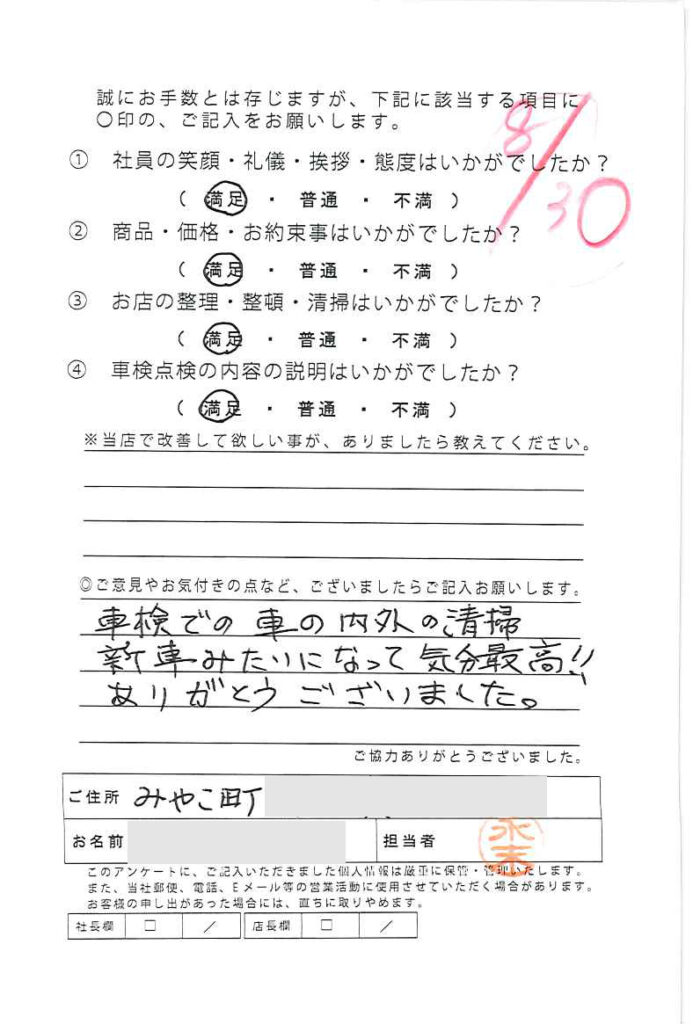 誠にお手数とは存じますが、下記に該当する項目に
〇印の、ご記入をお願いします。
8/30
① 社員の笑顔・礼儀・挨拶・態度はいかがでしたか？
（ 満足 ・ 普通 ・ 不満 ）
② 商品・価格・お約束事はいかがでしたか？
（ 満足 ・ 普通 ・ 不満 ）
③ お店の整理・整頓・清掃はいかがでしたか？
（ 満足 ・ 普通 ・ 不満 ）
④ 車検点検の内容の説明はいかがでしたか？
（ 満足 ・ 普通 ・ 不満 ）
※当店で改善して欲しい事が、ありましたら教えてください。
◎ご意見やお気付きの点など、ございましたらご記入お願いします。
車検での車の内外の清掃
新車みたいになって気分最高!!
ありがとうございました。
ご協力ありがとうございました。
ご住所 みやこ町
お名前 担当者 永末
このアンケートに、ご記入いただきました個人情報は厳重に保管・管理いたします。
また、当社郵便、電話、Eメール等の営業活動に使用させていただく場合があります。
お客様の申し出があった場合には、直ちに取りやめます。
社長欄 □ ／ 店長欄 □ ／